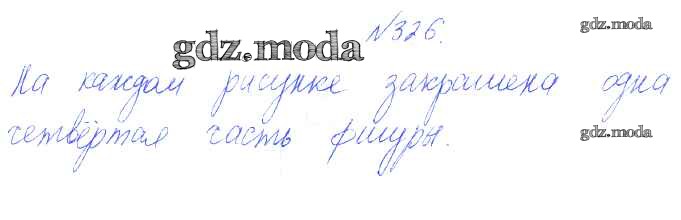 №326.
gdz.moda
gdz.moda
На каждом рисунке закрашена одна
четвёртая часть фигуры.
gdz.moda